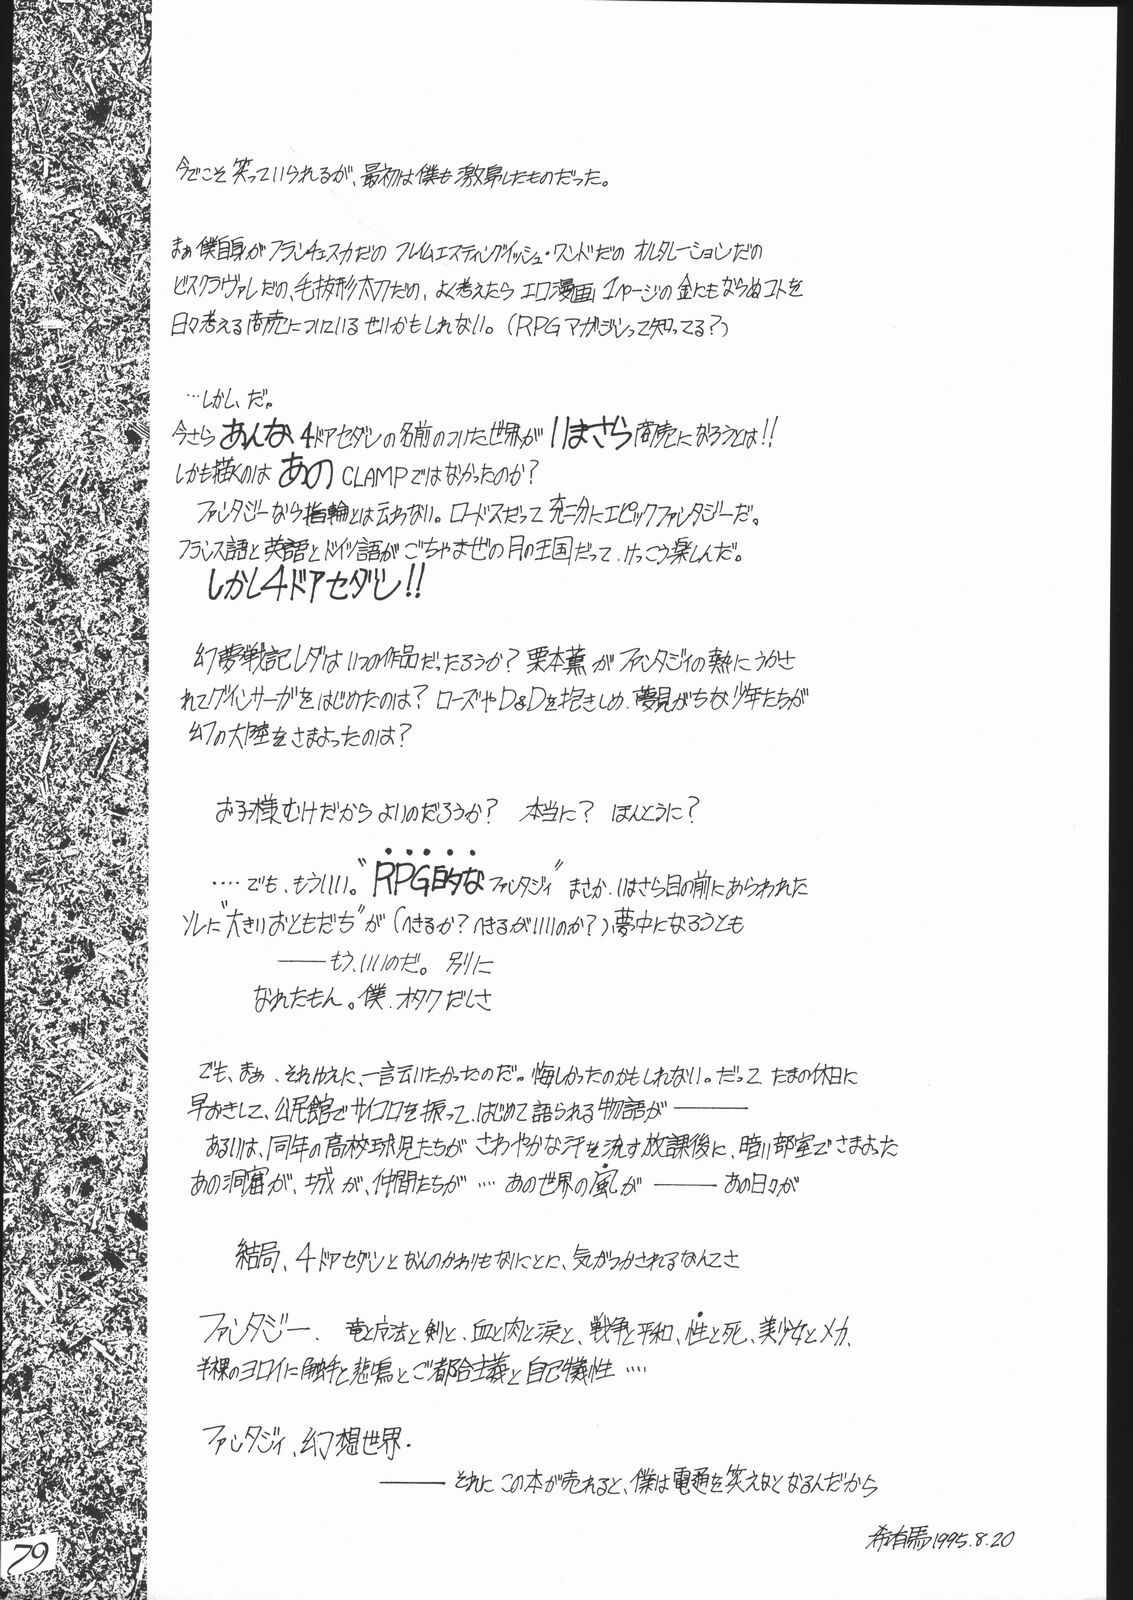 今でこそ笑っていられるが、最初は僕も激昂したものだった。
まぁ僕自身がフランチェスカだの フレイムエスティングイッシュ・ワンドだの オルタレーションだの
ビスクラヴァレだの、毛抜形太刀だの、よく考えたら エロ漫画 1ページの金にもならぬコトを
日々考える商売についているせいかもしれない。(RPGマガジンって知ってる?)
…しかし、だ。
今さら あんな 4ドアセダンの名前のついた世界が いまさら 商売になろうとは!!
しかも描くのは あの CLAMPではなかったのか?
ファンタジーなら指輪とは云わない。ロードスだって 充二分にエピックファンタジーだ。
フランス語と英語とドイツ語がごちゃまぜの月の王国だって、けっこう楽しんだ。
しかし4ドアセダン!!
幻夢戦記レダはいつの作品だったろうか? 栗本薫がファンタジィの熱にうかさ
れてグインサーガをはじめたのは? ローズやD&Dを抱きしめ、夢見がちな少年たちが
幻の大陸をさまよったのは?
お子様むけだから よいのだろうか? 本当に? ほんとうに?
‥‥でも、もういい。“RPG的なファンタジィ” まさか、いまさら目の前にあらわれた
ソレに“大きいおともだち”が(へきるか? へきるがいいのか?)夢中になろうとも
――もう、いいのだ。別に
なれたもん。僕、オタクだしさ
でも、まぁ、それゆえに、一言云いたかったのだ。悔しかったのかもしれない。だって たまの休日に
早おきして、公民館でサイコロを振って、はじめて語られる物語が――
あるいは、同年の高校球児たちが さわやかな汗を流す放課後に、暗い部室でさまよった
あの洞窟が、城が、仲間たちが ‥‥ あの世界の風が ―― あの日々が
結局、4ドアセダンとなんのかわりもないことに、気がつかされるなんてさ
ファンタジー、 竜と魔法と剣と、血と肉と涙と、戦争と平和、性と死、美少女とメカ、
半裸のヨロイに触手と悲鳴とご都合主義と自己犠牲 ‥‥
ファンタジィ、幻想世界.
――それに この本が売れると、僕は電通を笑えなくなるんだから
希有馬 1995.8.20
79